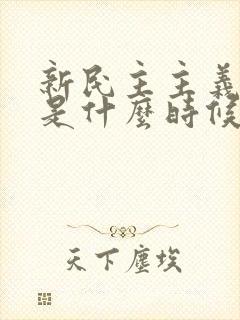 新民主主義
是什麼時候
天下塵埃